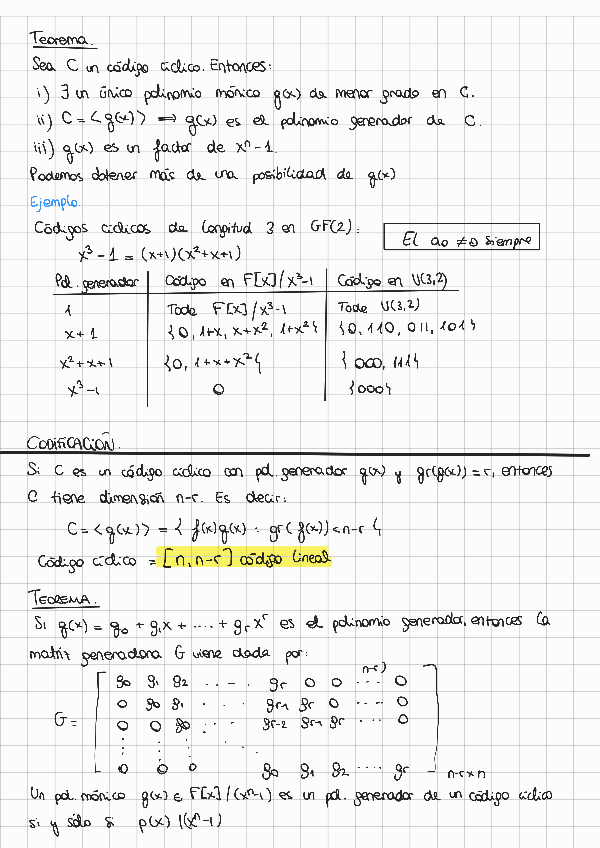 Teorema.
Sea C un código cíclico. Entonces:
i) ∃ un único polinomio mónico g(x) de menor grado en C.
ii) C = <g(x)> ⟹ g(x) es el polinomio generador de C.
iii) g(x) es un factor de xⁿ-1.
Podemos obtener más de una posibilidad de g(x)
Ejemplo.
Códigos cíclicos de longitud 3 en GF(2):
El a₀ ≠ 0 siempre
x³-1 = (x+1)(x²+x+1)
Pol. generador | Código en F[x]/x³-1 | Código en V(3,2)
1 | Todo F[x]/x³-1 | Todo V(3,2)
x+1 | {0, 1+x, x+x², 1+x²} | {0, 110, 011, 101}
x²+x+1 | {0, 1+x+x²} | {000, 111}
x³-1 | 0 | {000}
CODIFICACIÓN.
Si C es un código cíclico con pol. generador g(x) y gr(g(x)) = r, entonces
C tiene dimensión n-r. Es decir:
C = <g(x)> = { f(x)g(x) : gr(f(x)) < n-r }
Código cíclico = [n, n-r] código lineal
TEOREMA.
Si g(x) = g₀ + g₁x + .... + gᵣxʳ es el polinomio generador, entonces la
matriz generadora G viene dada por:
n-r)
g₀ g₁ g₂ ... gᵣ 0 0 ... 0
0 g₀ g₁ ... gᵣ₋₁ gᵣ 0 ... 0
G = 0 0 g₀ ... gᵣ₋₂ gᵣ₋₁ gᵣ ... 0
0 0 0 g₀ g₁ g₂ .... gᵣ
n-r×n
Un pol. mónico g(x) ∈ F[x]/(xⁿ-1) es un pol. generador de un código cíclico
si y sólo si p(x) |(xⁿ-1)